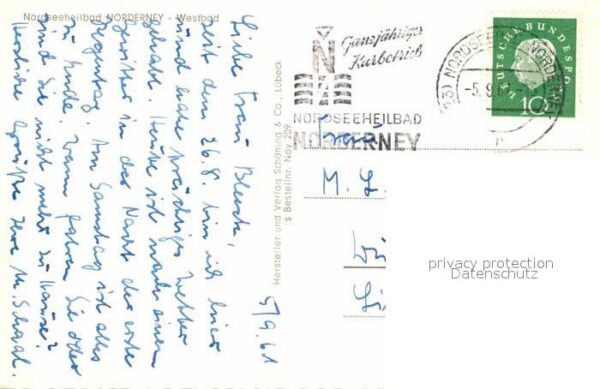 Nordseeheilbad NORDERNEY - Westbad
5/9.61
Liebe Frau
seit dem 26.8. bin ich hier
und habe prächtiges Wetter
gehabt. Heute ist nach einem
Gewitter in der Nacht der erste
Regentag. Am Samstag ist alles
zu Ende. Wann fahren Sie oder
sind Sie nicht mehr zu Hause?
Herzliche Grüße Ihre M. Schaal.
Hersteller und Verlag Schöning & Co., Lübeck
S Bestellnr. Noy 209
Ganzjähriger
Kurbetrieb
NORDSEEHEILBAD
NORDERNEY
(23) NORDSEEHEILBAD NORDERNEY
-5.9.61
DEUTSCHE BUNDESPOST
10
Frau
M. L.
privacy protection
Datenschutz